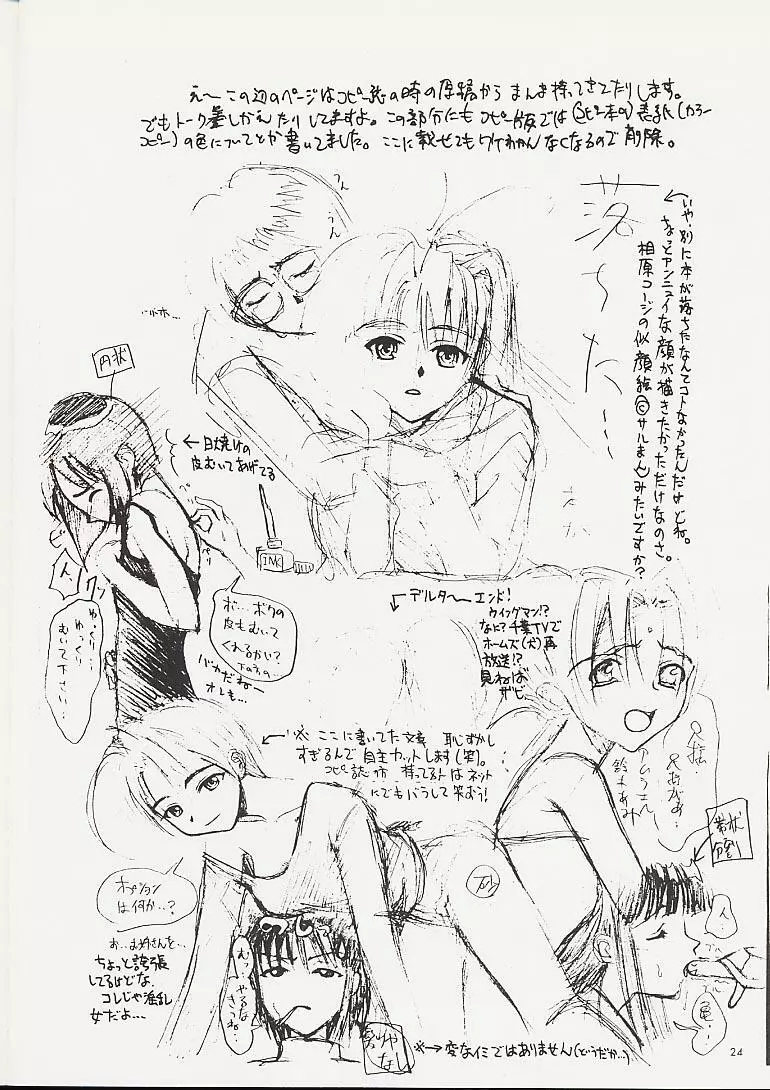 え～この辺のページはコピー誌の時の原稿からまんま持ってきてたりします。
でもトーク量しかえたりしてますよ。この部分にもコピー版では(コピー本の)表紙(カラー
コピー)の色についてとか書いてました。ここに載せてもワケわかんなくなるので削除。
落ちた…
←いや、別に本が落ちたなんてコトなかったんだけどね。
ちょっとアンニュイな顔が描きたかっただけなのさ。
相原コージの似顔絵©サルまんみたいですか?
うん
円状
←日焼けの
皮むいてあげてる
INK
ペリ
ゆっくり…
ゆっくり
むいて下さい…
ボ…ボクの
皮もむいて
くれるかい?
バカだねー
オレも…
←デルターエンド!
ウイングマン!?
なに?千葉TVで
ホームズ(犬)再
放送!?
見ねば
←※ここに書いてた文章 恥ずかし
すぎるんで自主カットします(笑)。
コピー誌 持ってる人はネット
にでもバラして笑おう!
鈴木あみ
帯状
オプション
は何か…?
お…お姉さんを…
ちょっと誇張
してるけどな
コレじゃ淫乱
女だよ…
む…やるな
きさうね…
なし
※→変なイミではありません(どうだか…)
24